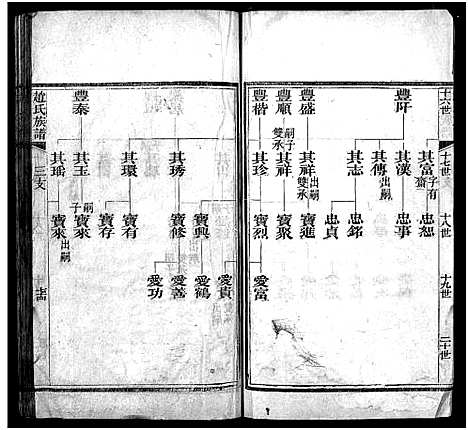 十六世
十七世
十八世
十九世
二十世
豐阡
豐盛
豐順 嗣子雙承
豐楷
其富 子有齋
其漢
其傳 出嗣
其志
其祥 出嗣雙承
其祥
其珍
忠恕
忠事
忠銘
忠貞
寶進
寶聚
寶烈
愛富
豐泰
其琇
其環
其玉 嗣子
其瑤
寶興
寶修
寶有
寶存
寶來
寶來 出嗣
愛貴
愛鶴
愛善
愛功
趙氏族譜
三支